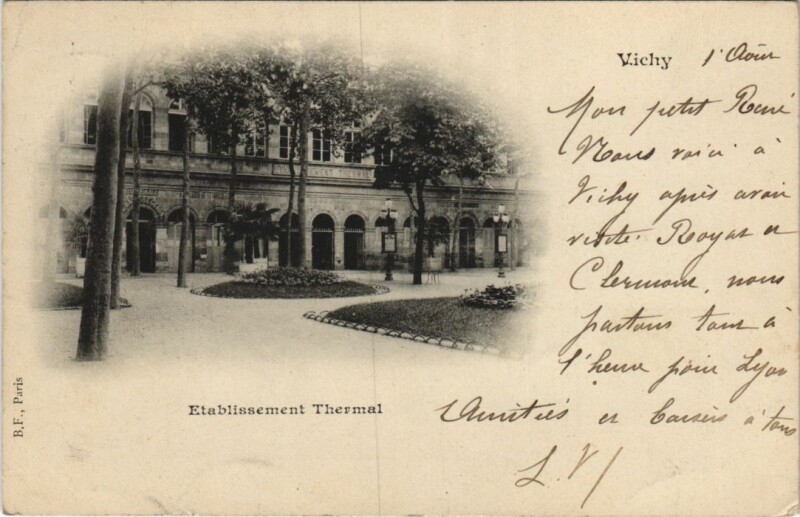 Vichy 1 Août
Mon petit René
Nous voici à
Vichy après avoir
visité Royat et
Clermont, nous
partons tout à
l'heure pour Lyon
Amitiés et baisers à tous
L.V/
ETABLISSEMENT THERMAL
Etablissement Thermal
B.F., Paris